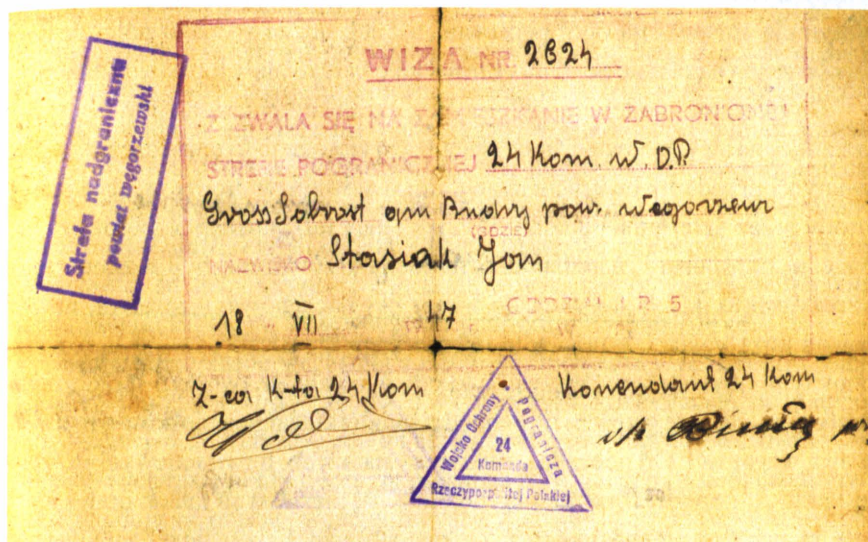 Strefa nadgraniczna
powiat węgorzewski
WIZA NR. 2624
ZEZWALA SIĘ NA ZAMIESZKANIE W ZABRONIONEJ
STREFIE POGRANICZNEJ 24 Kom. W.O.P.
Gross Sobrost gm Budry pow. Węgorzewo
(GDZIE)
NAZWISKO Stasiak Jan
ODDZIAŁ 5
18 VII 19 47
Z-ca K-ta 24 Kom
Komendant 24 Kom
Wojsko Ochrony Pogranicza
24
Komenda
Rzeczypospolitej Polskiej